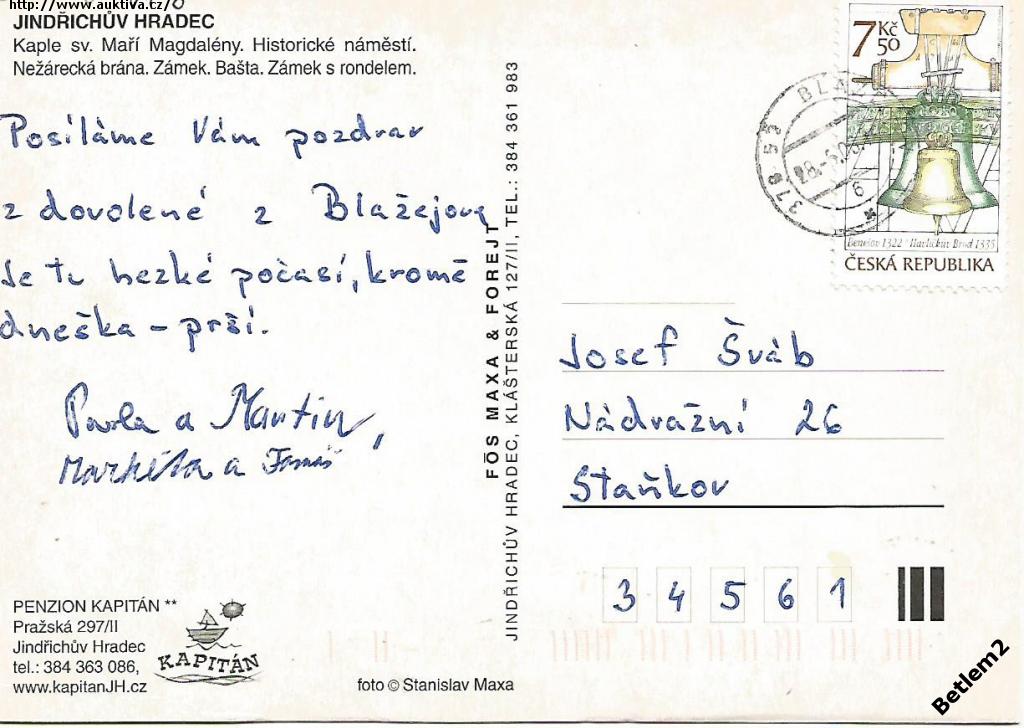 http://www.auktiva.cz/
JINDŘICHŮV HRADEC
Kaple sv. Maří Magdalény. Historické náměstí.
Nežárecká brána. Zámek. Bašta. Zámek s rondelem.
Posíláme Vám pozdrav
z dovolené z Blažejova
Je tu hezké počasí, kromě
dneška – prší.
Pavla a Martin,
Markéta a Tomáš
PENZION KAPITÁN **
Pražská 297/II
Jindřichův Hradec
tel.: 384 363 086,
www.kapitanJH.cz
KAPITÁN
foto © Stanislav Maxa
FÖS MAXA & FOREJT
JINDŘICHŮV HRADEC, KLÁŠTERSKÁ 127/II, TEL.: 384 361 983
7 Kč 50
Benešov 1322 * Havlíčkův Brod 1335
ČESKÁ REPUBLIKA
378 53
Josef Šváb
Nádražní 26
Staňkov
34561
Betlem2